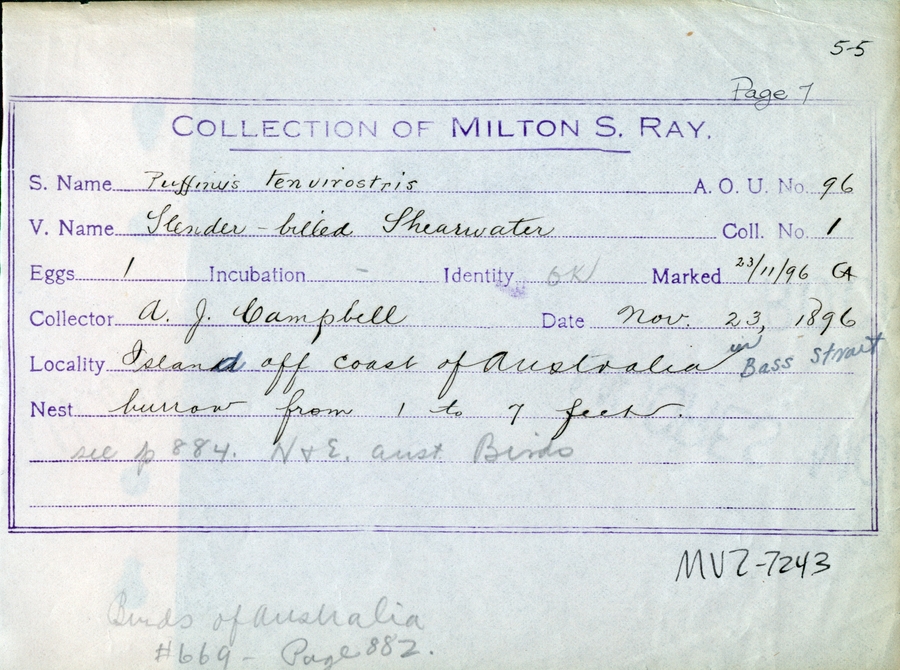 5-5
Page 7
COLLECTION OF MILTON S. RAY.
S. Name Puffinus tenuirostris A. O. U. No. 96
V. Name Slender-billed Shearwater Coll. No. 1
Eggs 1 Incubation - Identity OK Marked 23/11/96 CA
Collector A. J. Campbell Date Nov. 23, 1896
Locality Island off coast of Australia in Bass Strait
Nest burrow from 1 to 7 feet.
see p 884. N & E. aust Birds
MVZ-7243
Birds of Australia
#669 - Page 882.